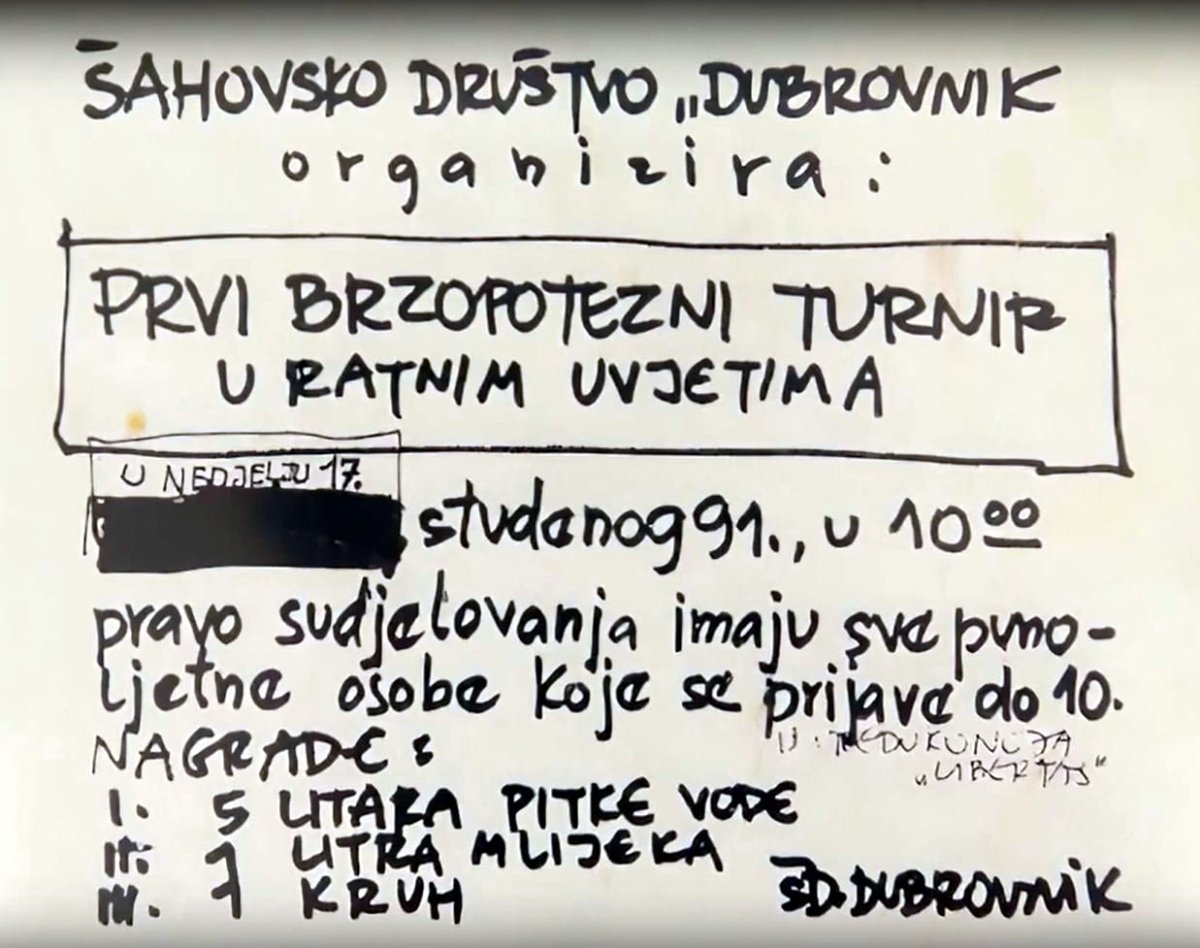 ŠAHOVSKO DRUŠTVO „DUBROVNIK
organizira:
PRVI BRZOPOTEZNI TURNIR
U RATNIM UVJETIMA
U NEDJELJU 17.
studenog 91., u 10 00
pravo sudjelovanja imaju sve puno-
ljetne osobe koje se prijave do 10.
U
„LIBERTAS“
NAGRADE:
I. 5 LITARA PITKE VODE
II. 1 LITRA MLIJEKA
III. 1 KRUH
ŠD. DUBROVNIK